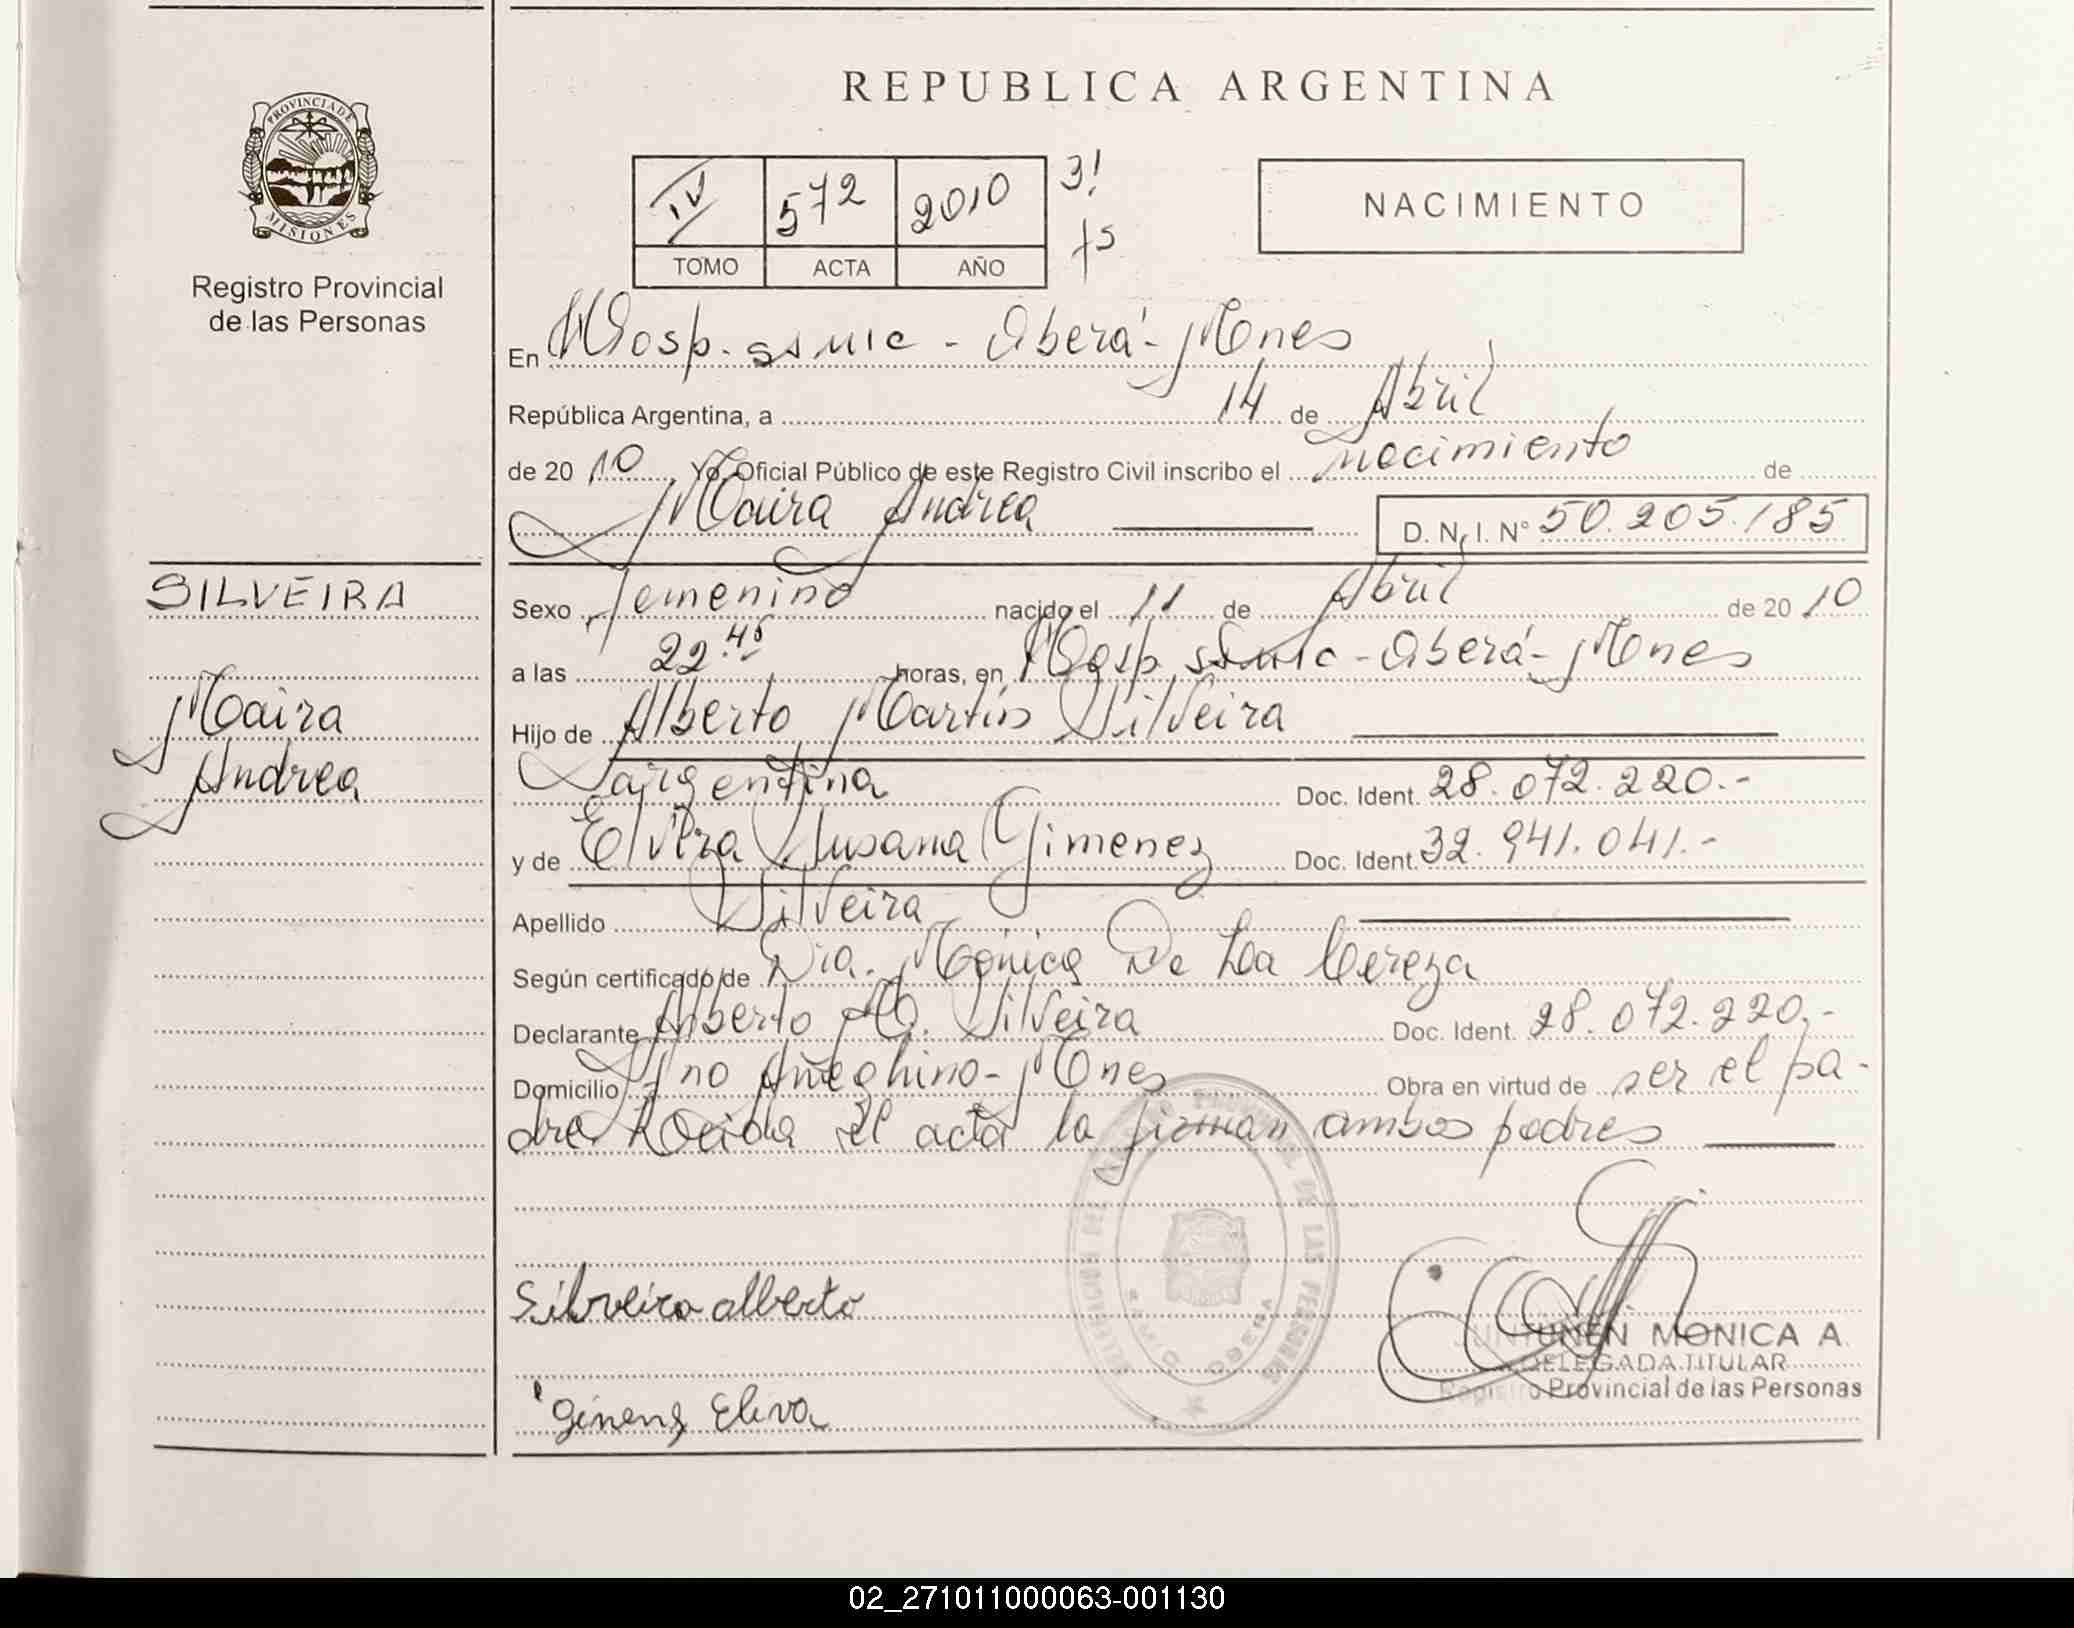 REPUBLICA ARGENTINA
PROVINCIA DE MISIONES
Registro Provincial
de las Personas
IV 572 2010 3!
TOMO ACTA AÑO
NACIMIENTO
En Hosp. ssmic - Oberá - Mnes
República Argentina, a 14 de Abril
de 20 10 Yo, Oficial Público de este Registro Civil inscribo el nacimiento de
Maira Andrea D. N. I. Nº 50.205.185
SILVEIRA
Maira
Andrea
Sexo femenino nacido el 11 de Abril de 20 10
a las 22.45 horas, en Hosp ssmic - Oberá - Mnes
Hijo de Alberto Martin Silveira
argentina Doc. Ident. 28.072.220.-
y de Elvira Susana Gimenez Doc. Ident. 32.941.041.-
Apellido Silveira
Según certificado de Dra. Monica De La Cereza
Declarante Alberto M. Silveira Doc. Ident. 28.072.220.-
Domicilio Fno Ameghino - Mnes Obra en virtud de ser el pa-
dre. Leida el acta la firman ambos padres
Silveira alberto
JUNTUNEN MONICA A.
DELEGADA TITULAR
Registro Provincial de las Personas
02_271011000063-001130